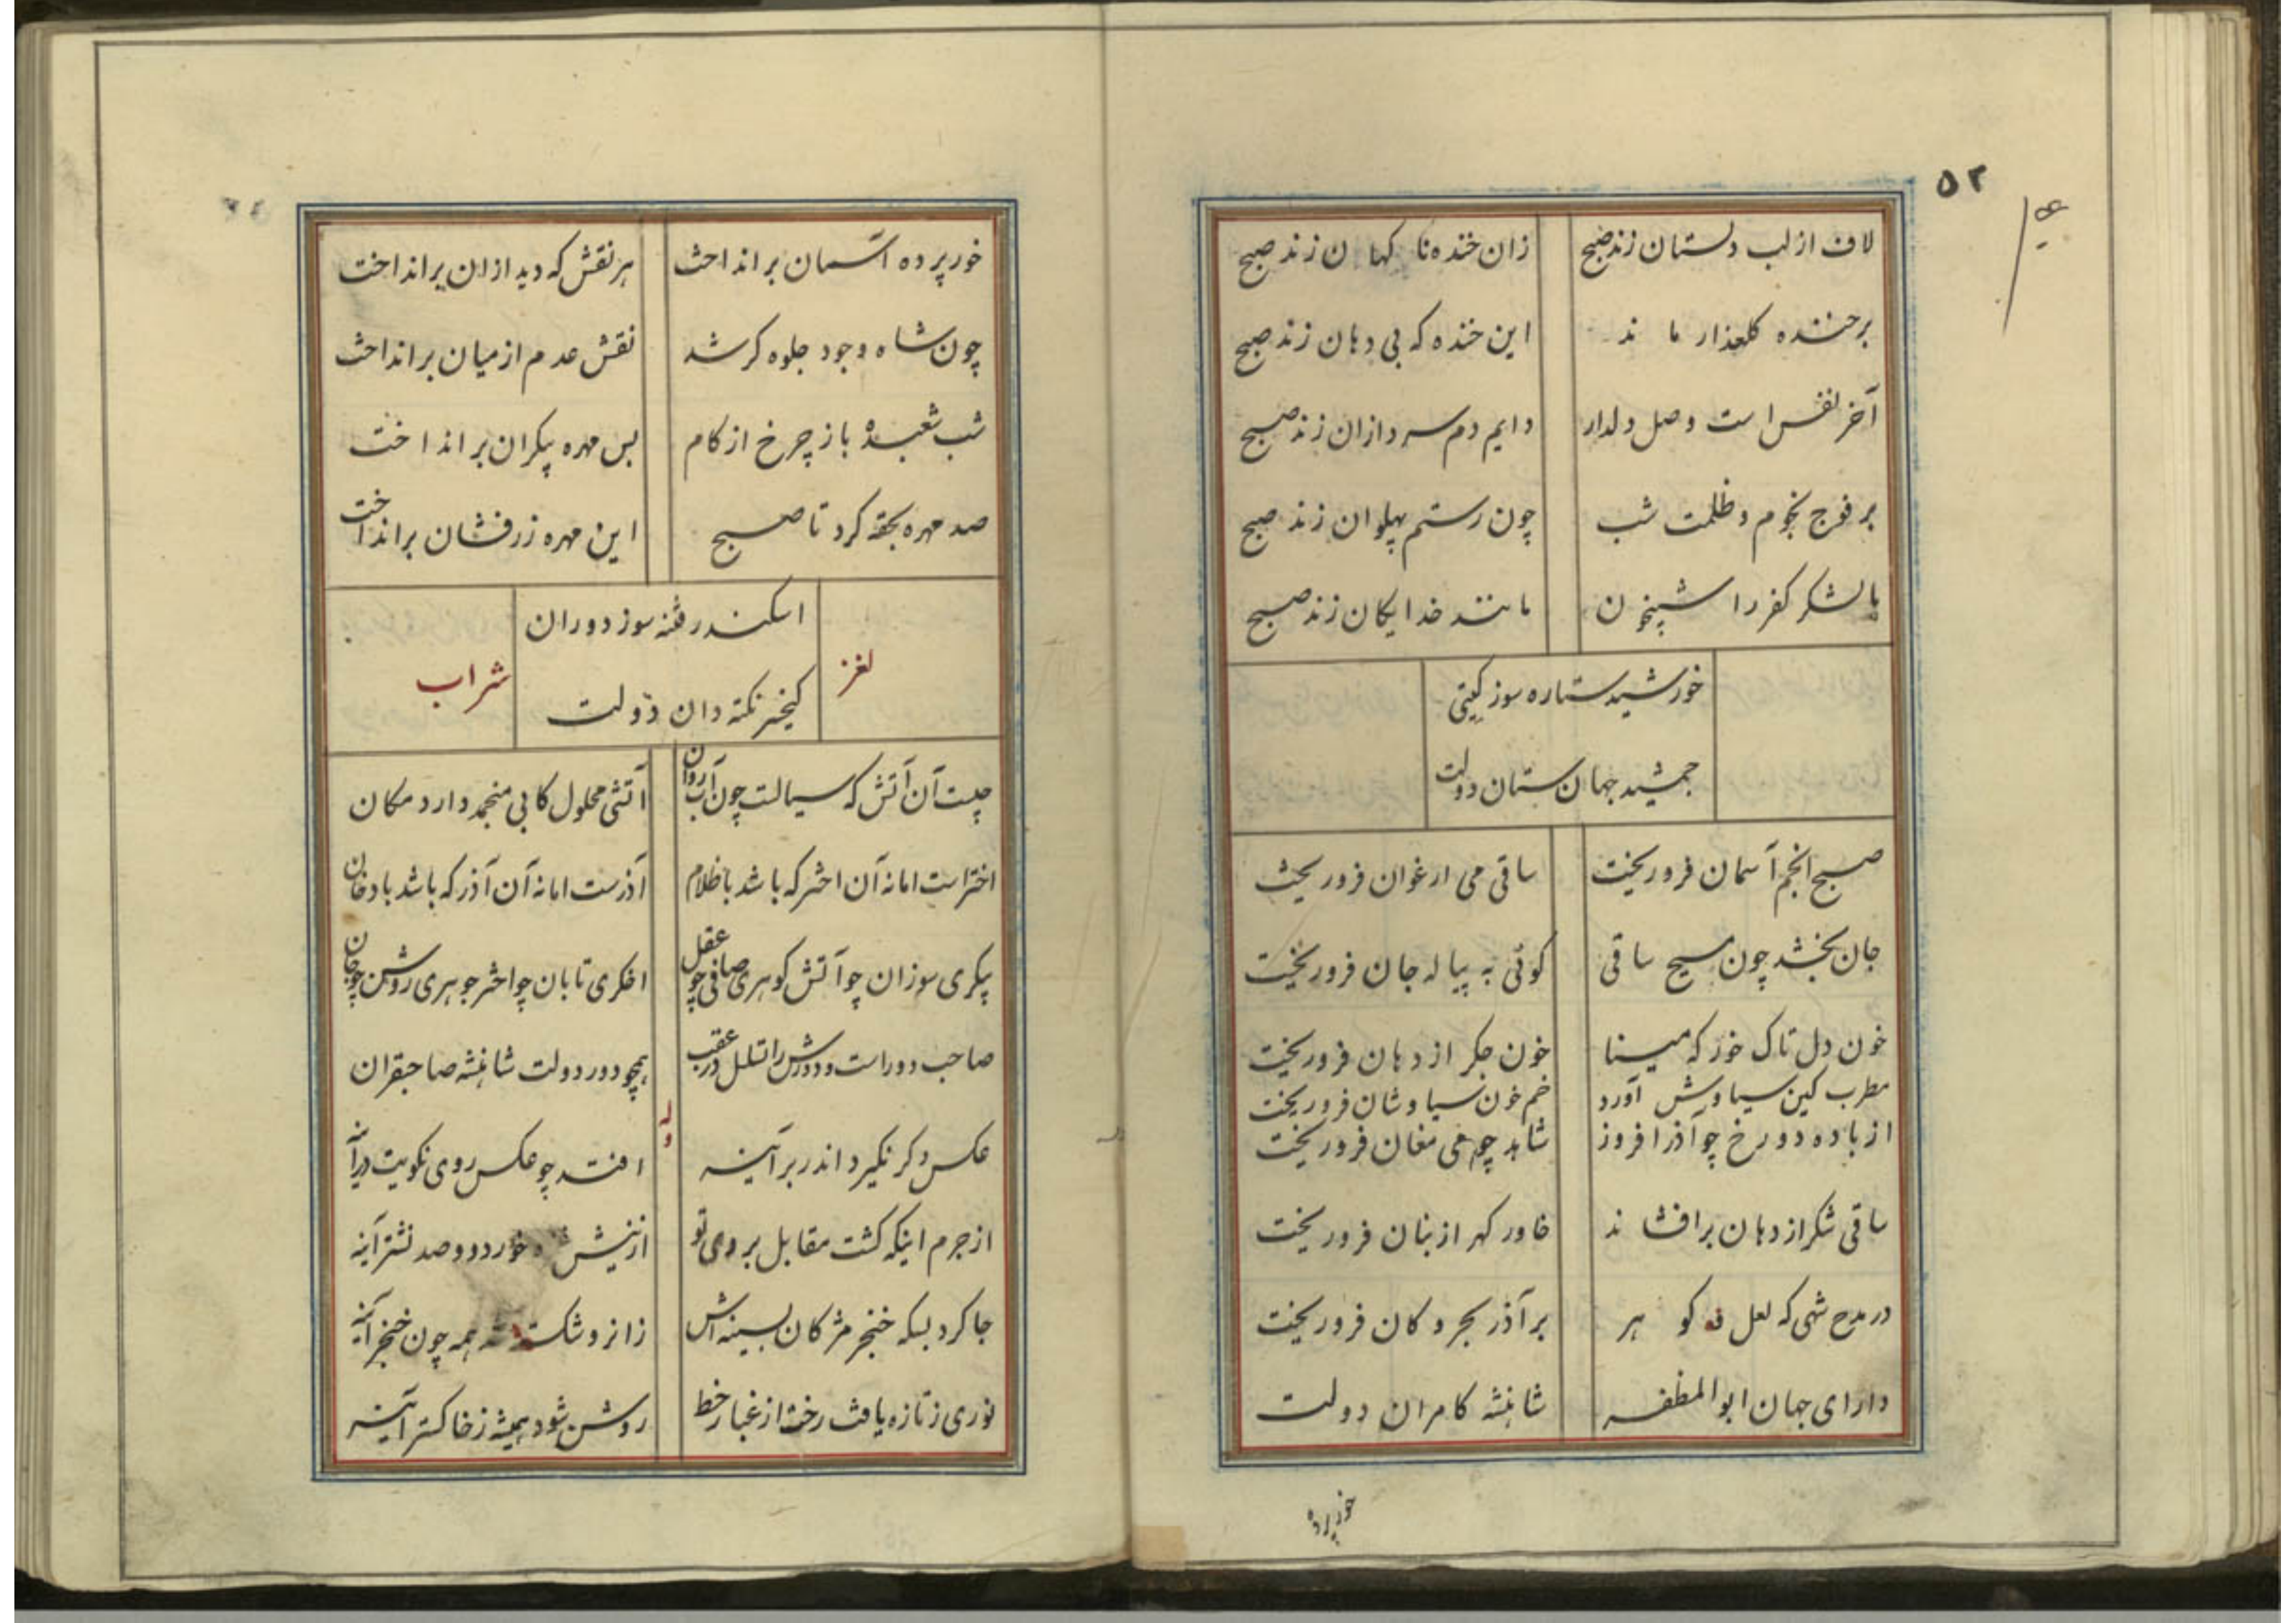 ۵۲
لاف از لب دلستان زند صبح
زان خنده نا کهان زند صبح
بر خنده کلعذار ماند
این خنده که بی دهان زند صبح
آخر نفس است وصل دلدار
دایم دم سرد ازان زند صبح
بر فوج نجوم و ظلمت شب
چون رستم پهلوان زند صبح
بالشکر کفر را شبیخون
مانند خدایکان زند صبح
خورشید ستاره سوز کیتی
جمشید جهان ستان دولت
صبح انجم آسمان فرو ریخت
ساقی می ارغوان فرو ریخت
جان بخشد چون مسیح ساقی
کوئی به پیاله جان فرو ریخت
خون دل تاک خور که مینا
خون جکر از دهان فرو ریخت
مطرب کین سیاوش آورد
خم خون سیاوشان فرو ریخت
از باده دو رخ چو آذر افروز
شاهد چو می مغان فرو ریخت
ساقی شکر از دهان بر افشاند
خاور کهر از بنان فرو ریخت
در مدح شهی که لعل کوهر
بر آذر بحر و کان فرو ریخت
دارای جهان ابوالمظفر
شاهنشه کامران دولت
خور پرده
خور پرده آسمان بر انداخت
هر نقش که دید ازان بر انداخت
چون شاه وجود جلوه کر شد
نقش عدم از میان بر انداخت
شب شعبده باز چرخ از کام
بس مهره پیکران بر انداخت
صد مهره بحقه کرد تا صبح
این مهره زرفشان بر انداخت
اسکندر فتنه سوز دوران
کیخسر نکته دان دولت
لغز
شراب
چیست آن آتش که سیالست چون آب روان
آتشی محلول کابی منجمد دارد مکان
اختراست اما نه آن اختر که باشد با ظلام
آذرست اما نه آن آذر که باشد با دخان
پیکری سوزان چو آتش کوهری صافی چو عقل
اخکری تابان چو اختر جوهری روشن چو جان
صاحب دور است و دورش را تسلسل در عقب
همچو دور دولت شاهنشه صاحبقران
وله
عکس دکر نکیرد اندر بر آینه
افتد چو عکس روی نکویت در آینه
از جرم اینکه کشت مقابل بروی تو
از نیش خورد دو صد نشتر آینه
جا کرد بسکه خنجر مژکان بسینه اش
زانرو شکسته شد همه چون خنجر آینه
نوری ز تازه یافت رخت از غبار خط
روشن شود همیشه ز خاکستر آینه